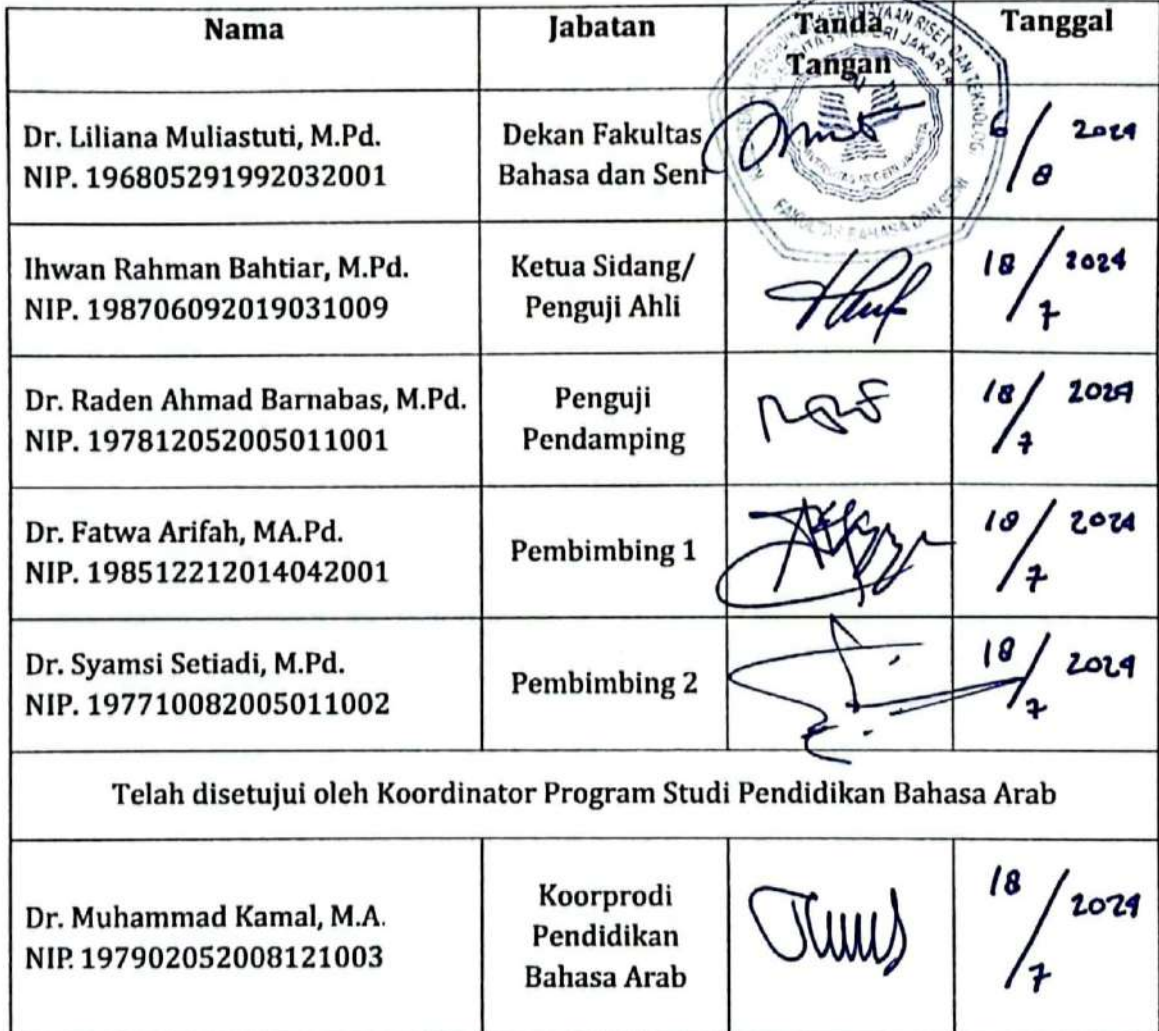 Nama Jabatan Tanda Tangan Tanggal
Dr. Liliana Muliastuti, M.Pd.
NIP. 196805291992032001
Dekan Fakultas
Bahasa dan Seni
6/8 2024
Ihwan Rahman Bahtiar, M.Pd.
NIP. 198706092019031009
Ketua Sidang/
Penguji Ahli
18/7 2024
Dr. Raden Ahmad Barnabas, M.Pd.
NIP. 197812052005011001
Penguji
Pendamping
18/7 2024
Dr. Fatwa Arifah, MA.Pd.
NIP. 198512212014042001
Pembimbing 1
18/7 2024
Dr. Syamsi Setiadi, M.Pd.
NIP. 197710082005011002
Pembimbing 2
18/7 2024
Telah disetujui oleh Koordinator Program Studi Pendidikan Bahasa Arab
Dr. Muhammad Kamal, M.A.
NIP. 197902052008121003
Koorprodi
Pendidikan
Bahasa Arab
18/7 2024